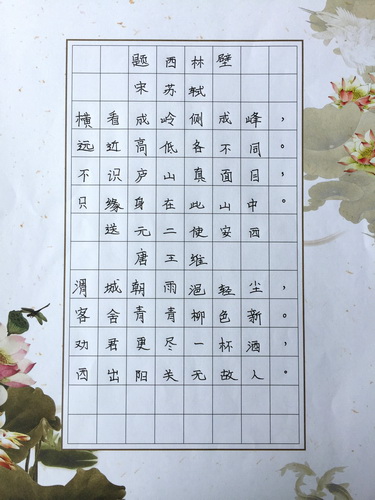 题西林壁
宋苏轼
横看成岭侧成峰，
远近高低各不同。
不识庐山真面目，
只缘身在此山中。
送元二使安西
唐王维
渭城朝雨浥轻尘，
客舍青青柳色新。
劝君更尽一杯酒，
西出阳关无故人。